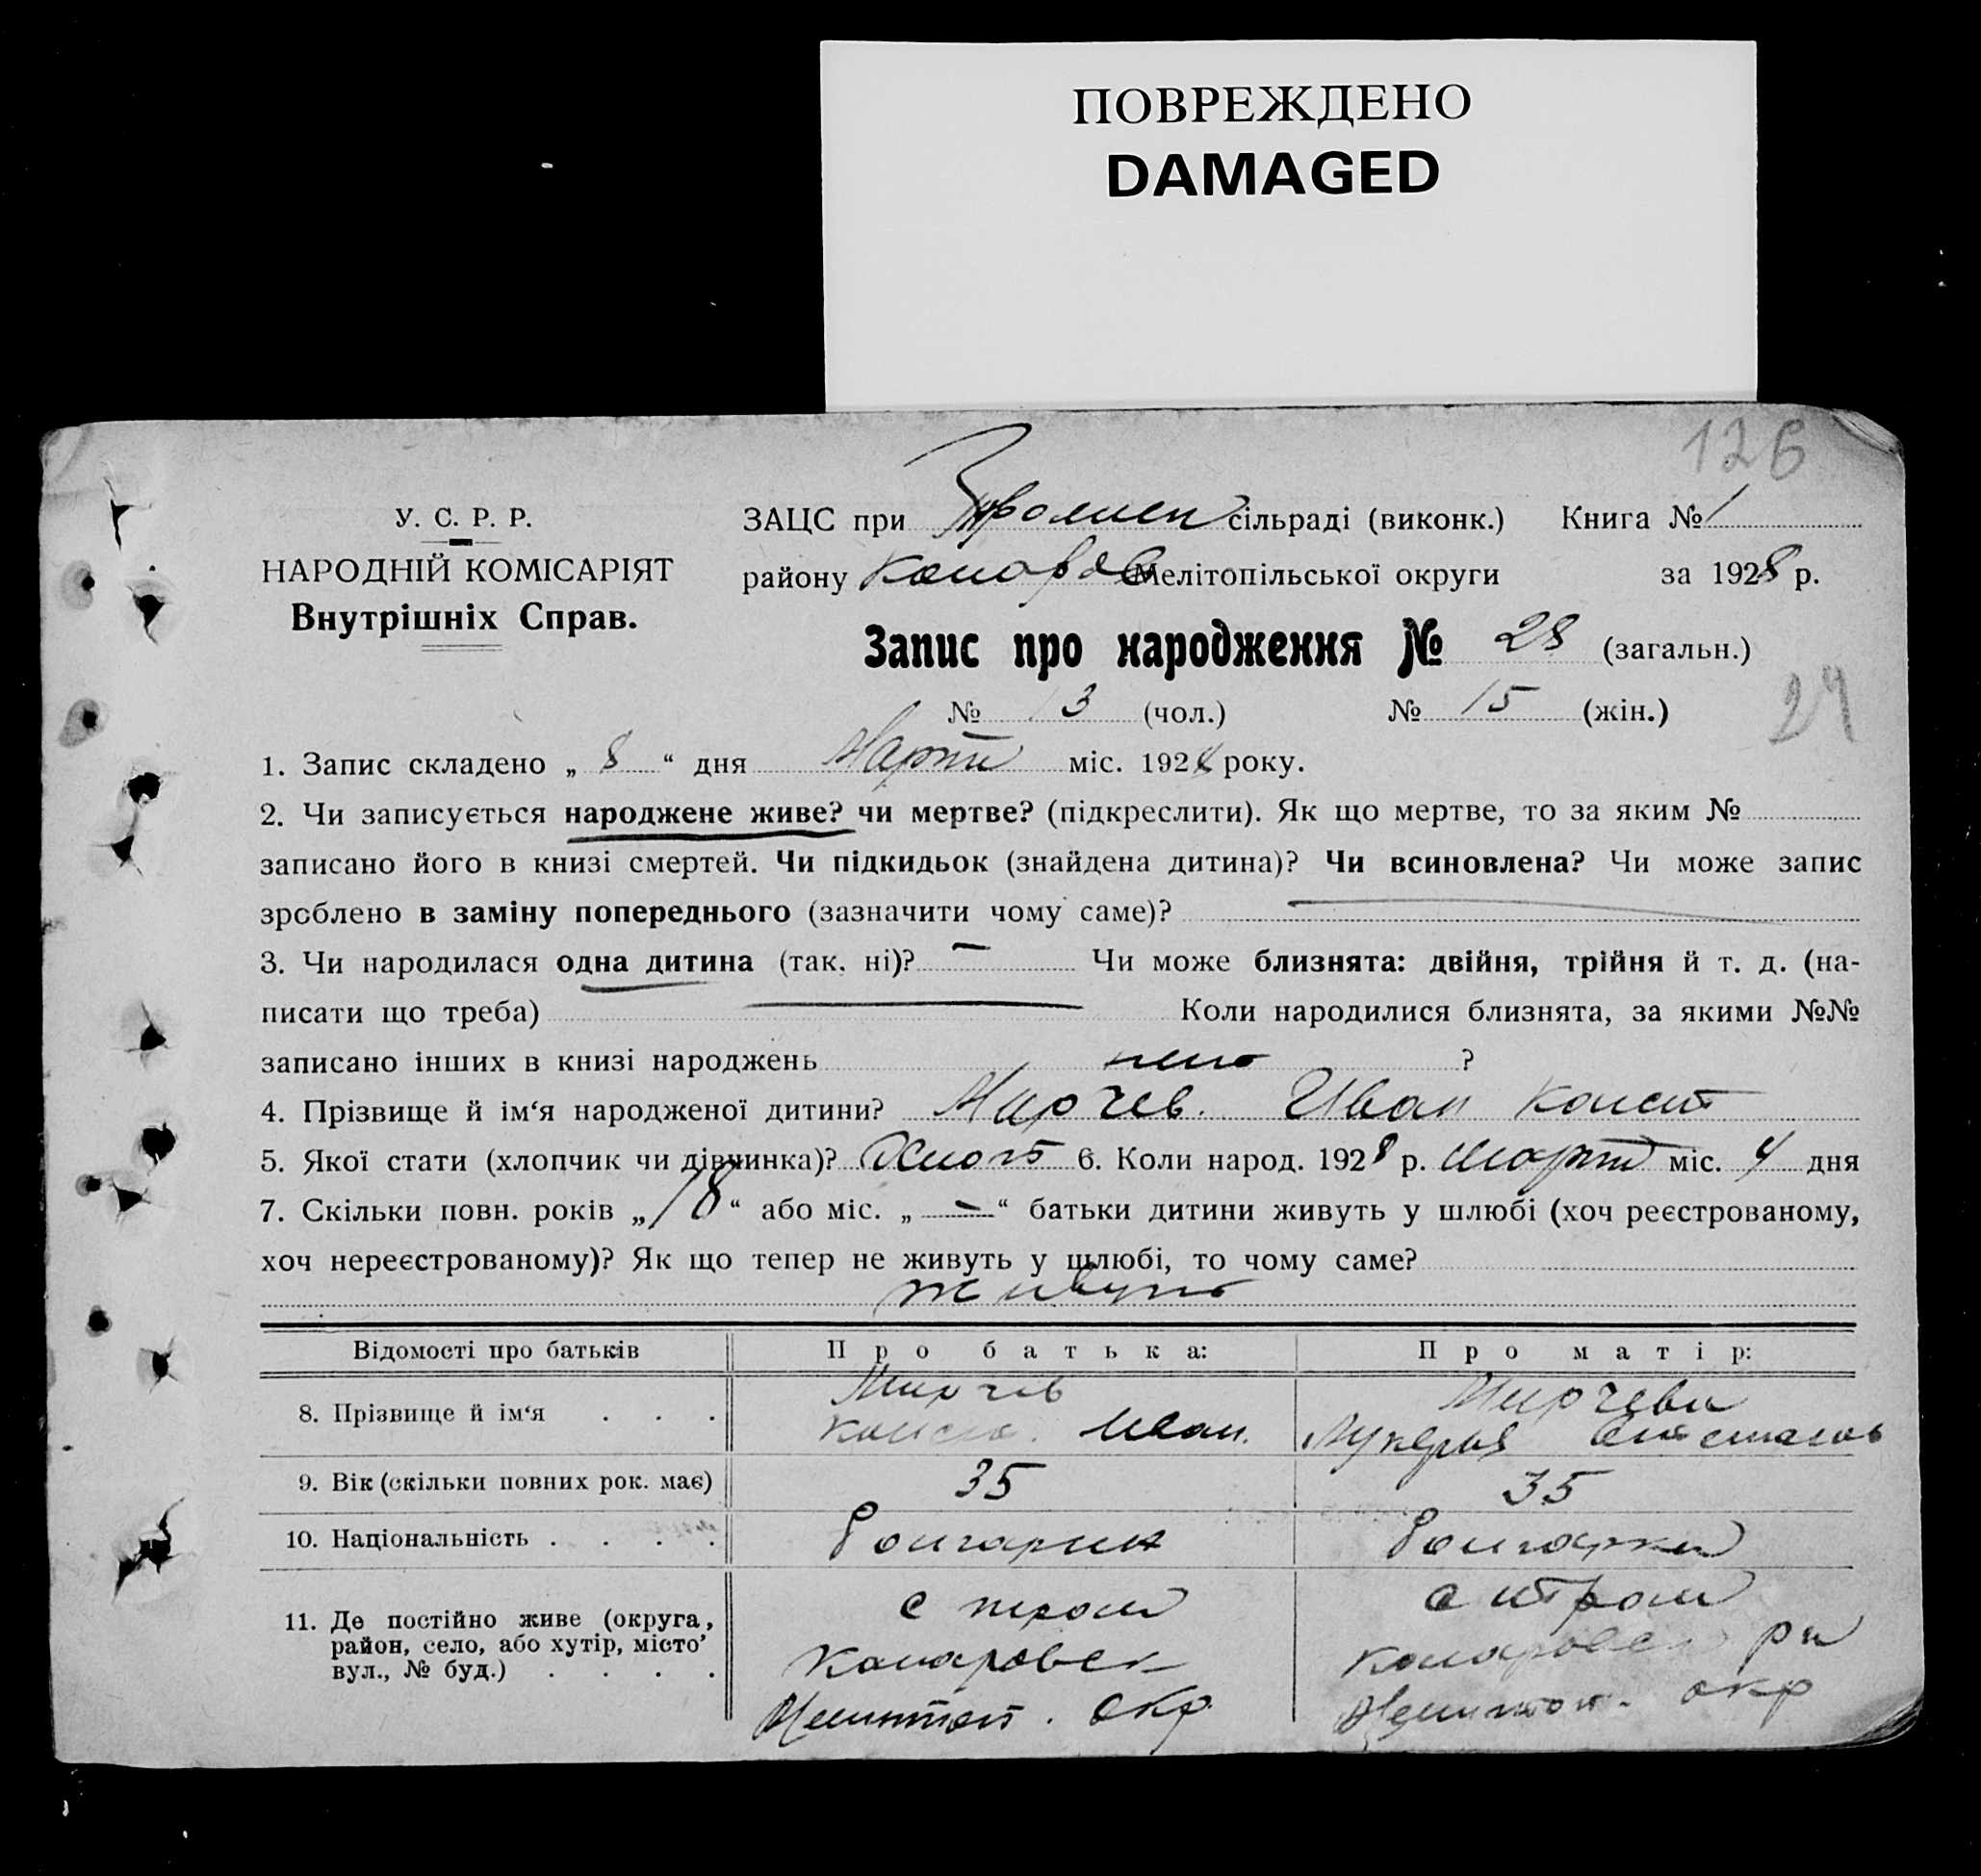 ПОВРЕЖДЕНО
DAMAGED
126
У. С. Р. Р.
НАРОДНІЙ КОМІСАРІЯТ
Внутрішніх Справ.
ЗАЦС при сільраді (виконк.) Книга № 1
району Мелітопільської округи за 1928 р.
Запис про народження № 28 (загальн.)
№ 13 (чол.) № 15 (жін.)
1. Запис складено „ 8 “ дня Марта міс. 1928 року.
2. Чи записується народжене живе? чи мертве? (підкреслити). Як що мертве, то за яким №
записано його в книзі смертей. Чи підкидьок (знайдена дитина)? Чи всиновлена? Чи може запис
зроблено в заміну попереднього (зазначити чому саме)?
3. Чи народилася одна дитина (так, ні)? — Чи може близнята: двійня, трійня й т. д. (на-
писати що треба) — Коли народилися близнята, за якими №№
записано інших в книзі народжень ?
4. Прізвище й ім‘я народженої дитини? Мирчев Иван Конст
5. Якої стати (хлопчик чи дівчинка)? 6. Коли народ. 1928 р. Марта міс. 4 дня
7. Скільки повн. років „18“ або міс. „—“ батьки дитини живуть у шлюбі (хоч реєстрованому,
хоч нереєстрованому)? Як що тепер не живуть у шлюбі, то чому саме?
живуть
Відомості про батьків Про батька: Про матір:
8. Прізвище й ім‘я Мирчев Конст. Иван. Мирчева Лукерия
9. Вік (скільки повних рок. має) 35 35
10. Національність Болгарин Болгарка
11. Де постійно живе (округа,
район, село, або хутір, місто
вул., № буд.)
с с
Коларовск Коларовск рн
Мелитоп. окр Мелитоп. окр